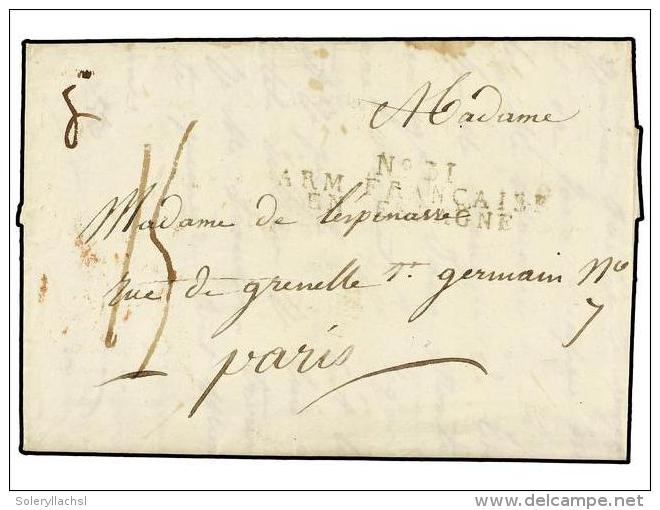 Madame
8
15
No 31
ARM FRANÇAISE
EN ESPAGNE
Madame de lespinasse
rue de grenelle st. germain No
7
paris
Soleryllachsl
delcampe.net